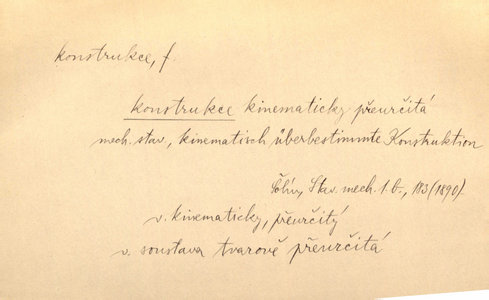 konstrukce, f.
konstrukce kinematicky přeurčitá
mech. stav., kinematisch überbestimmte Konstruktion
Šolín, Stav. mech. 1. b., 113 (1890)
v. kinematicky, přeurčitý
v. soustava tvarově přeurčitá